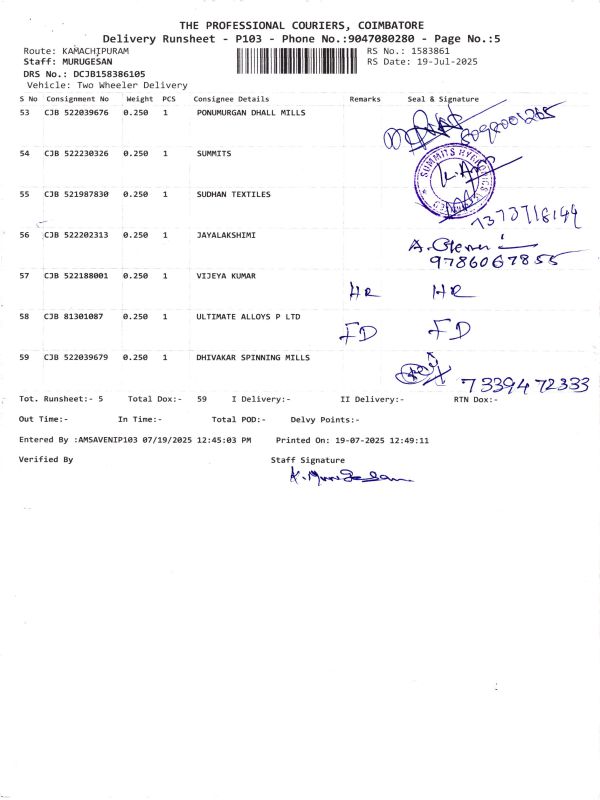 THE PROFESSIONAL COURIERS, COIMBATORE
Delivery Runsheet - P103 - Phone No.:9047080280 - Page No.:5
Route: KAMACHIPURAM RS No.: 1583861
Staff: MURUGESAN RS Date: 19-Jul-2025
DRS No.: DCJB158386105
Vehicle: Two Wheeler Delivery
S No Consignment No Weight PCS Consignee Details Remarks Seal & Signature
53 CJB 522039676 0.250 1 PONUMURGAN DHALL MILLS
54 CJB 522230326 0.250 1 SUMMITS
SUMMITS
55 CJB 521987830 0.250 1 SUDHAN TEXTILES
7373718144
56 CJB 522202313 0.250 1 JAYALAKSHIMI
9786067855
57 CJB 522188001 0.250 1 VIJEYA KUMAR
HR HR
58 CJB 81301087 0.250 1 ULTIMATE ALLOYS P LTD
FD FD
59 CJB 522039679 0.250 1 DHIVAKAR SPINNING MILLS
7339472333
Tot. Runsheet:- 5 Total Dox:- 59 I Delivery:- II Delivery:- RTN Dox:-
Out Time:- In Time:- Total POD:- Delvy Points:-
Entered By :AMSAVENIP103 07/19/2025 12:45:03 PM Printed On: 19-07-2025 12:49:11
Verified By Staff Signature